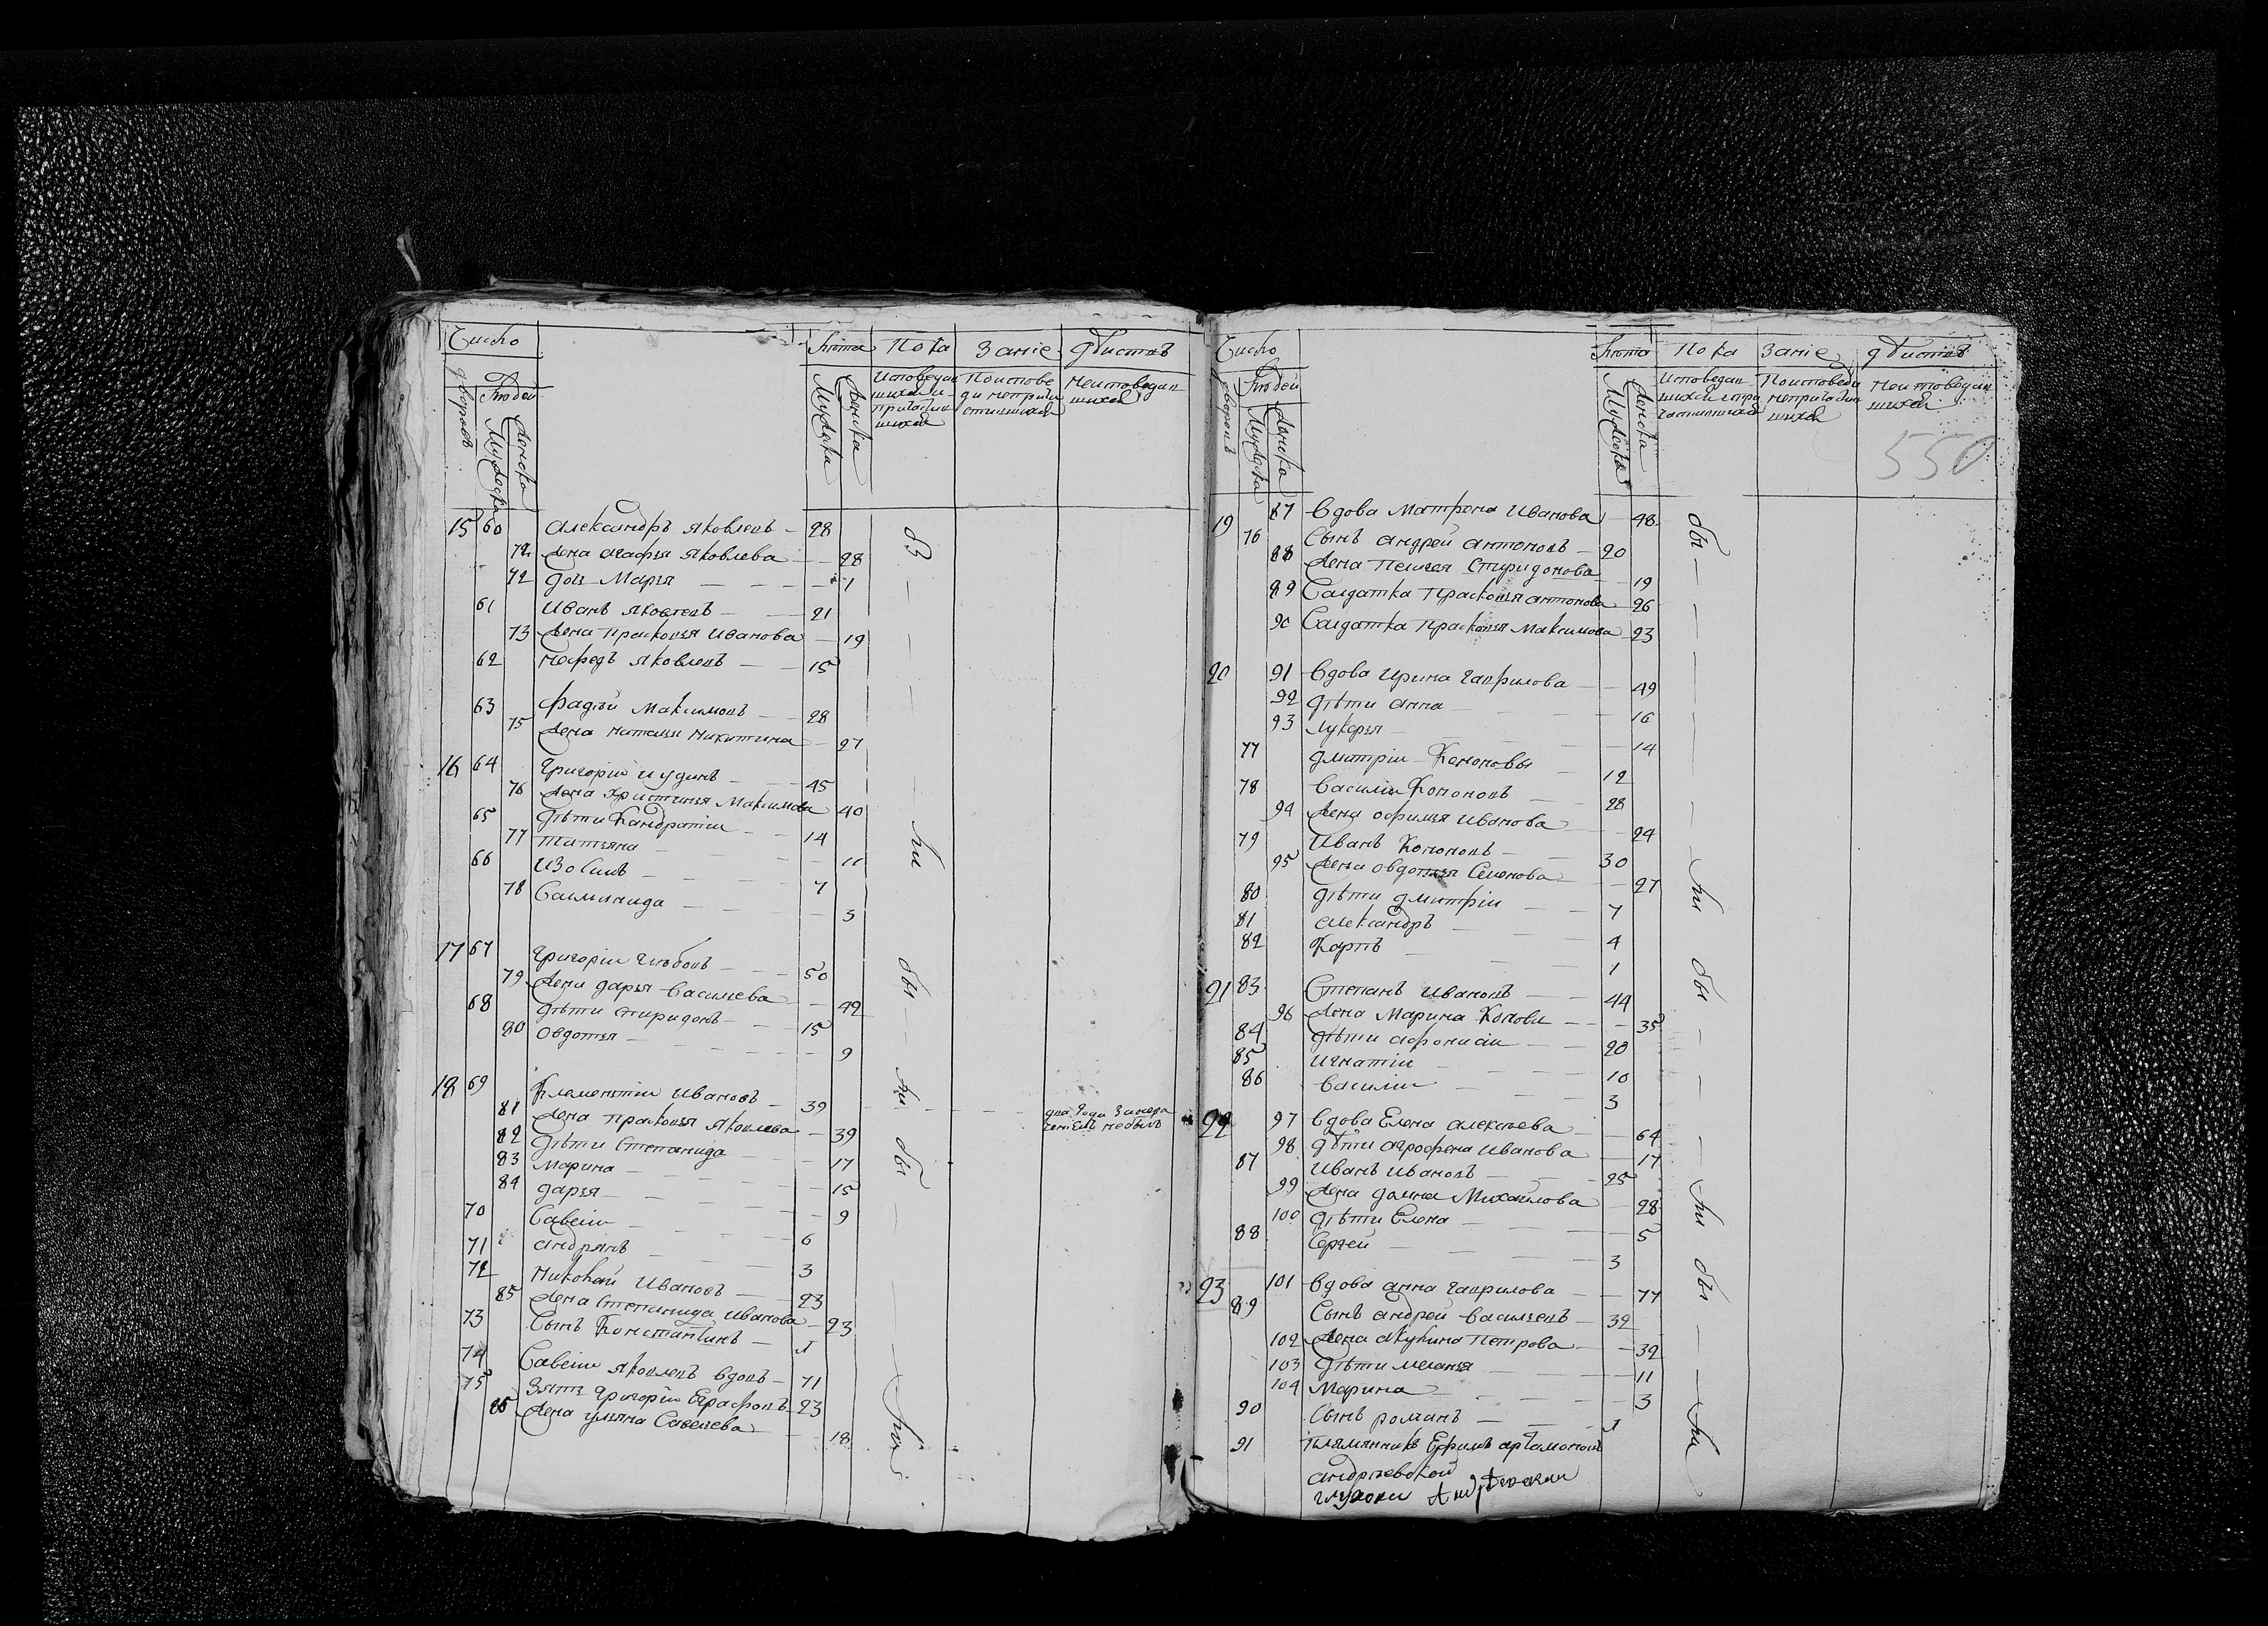 Число
Лѣта
Пока
Заніе
дѣйства
дворовъ
Людей
Мужеска
Женска
Мужеска
Женска
Исповедав
шихся и
причастив
шихся
По испове
ди непріча
стившихся
Неисповедав
шихся
15 60 Александръ Яковлевъ 28
Жена Агафья Яковлева 28
72 дочь Марья 1
61 Иванъ Яковлевъ 21
73 Жена Прасковья Иванова 19
62 Нефедъ Яковлевъ 15
63 Фадѣй Максимовъ 28
75 Жена Наталья Никитина 27
16 64 Григорій Іудинъ 45
76 Жена Христинья Максимова 40
65 Дѣти Кандратіи 14
77 Татьяна 11
66 Изосимъ 7
78 Саламанида 3
17 67 Григоріи Глебовъ 50
79 Жена дарья Васильева 49
68 Дѣти Спиридонъ 15
80 Овдотья 9
18 69 Клементіи Ивановъ 39
81 Жена Прасковья Яковлева 39
два года
небылъ
82 Дѣти Степанида 17
83 Марина 15
84 дарья 9
70 Савелии 6
71 андрянъ 3
72 Николай Ивановъ 23
85 Жена Степанида Иванова 23
73 Сынъ Константинъ 1
74 Савелии Яковлевъ вдовъ 71
75 Зять Григоріи Ерафовъ 23
86 Жена Ульяна Савельева 18
бы
ли
бы
ли
бы
ли
Число
Лѣта
Пока
Заніе
дѣйства
дворовъ
Людей
Мужеска
Женска
Мужеска
Женска
Исповедав
шихся и при
частившихся
По исповеди
непричастив
шихся
Неисповедав
шихся
550
19 87 Вдова Матрена Иванова 48
76 Сынъ андрей антоновъ 20
88 Жена Пелагея Спиридонова 19
89 Салдатка Прасковья антонова 26
90 Салдатка Прасковья Максимова 23
20 91 Вдова Ирина Гаврилова 49
92 Дѣти анна 16
93 Лукерья 14
77 дмитріи Кононовы 12
78 Василіи Кононовъ 28
94 Жена Офимья Иванова 24
79 Иванъ Кононовъ 30
95 Жена Овдотья Семенова 27
80 Дѣти дмитріи 7
81 александръ 4
82 Карпъ 1
21 83 Степанъ Ивановъ 44
96 Жена Марина Конова 35
84 Дѣти Афонасіи 20
85 Игнатіи 10
86 Василии 3
22 97 Вдова Елена алексѣева 64
98 дѣти Агрофена Иванова 17
87 Иванъ Ивановъ 25
99 Жена домна Михайлова 28
100 Дѣти Елена 5
88 Сергей 3
23 101 Вдова анна Гаврилова 77
89 Сынъ андрей Васильевъ 32
102 Жена акулина Петрова 32
103 Дѣти меланья 11
104 Марина 3
90 Сынъ романъ 1
91 Племянникъ Ефимъ артамоновъ
андрѣевской
бы
ли
бы
ли
бы
ли